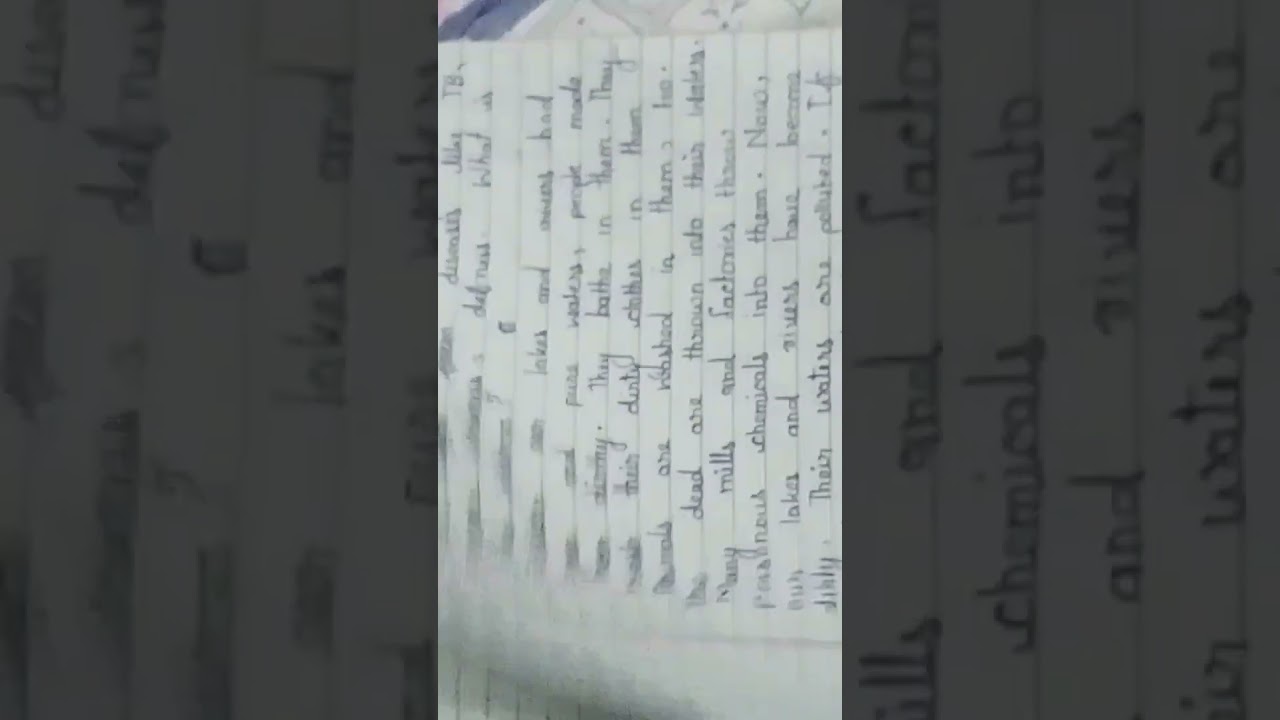 diseases like TB,
defness. What is
lakes and rivers had
pure waters, people made
They bathe in them. They
their dirty clothes in them
are washed in them, too.
the dead are thrown into their waters.
Many mills and factories throw
poisnous chemicals into them. Now,
our lakes and rivers have become
dirty. Their waters are polluted. If